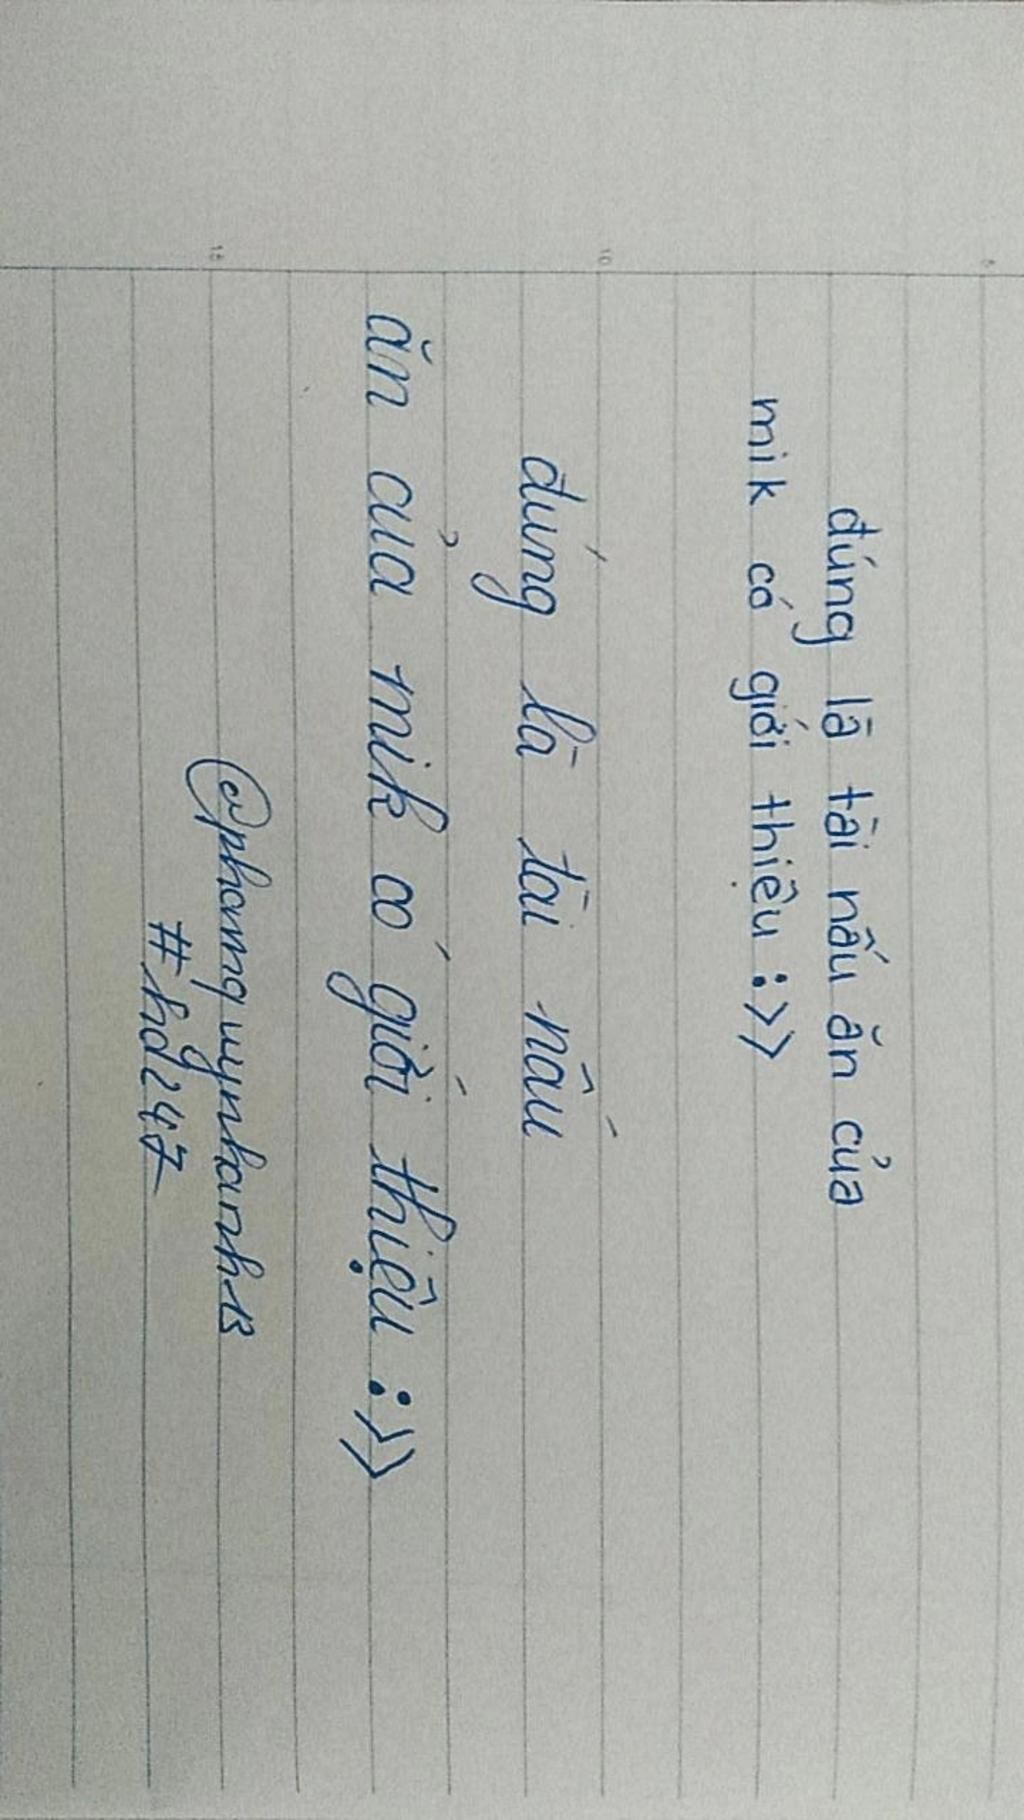 đúng là tài nấu ăn của
mik có giới thiệu :>>
đúng là tài nấu
ăn của mik có giới thiệu :>>
@phamquynhanh13
#hd247
5
10
15